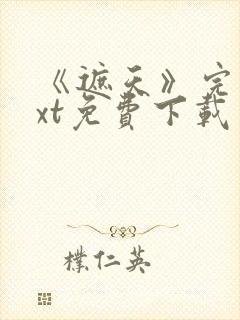 《遮天》完
xt免費下載
樸仁英